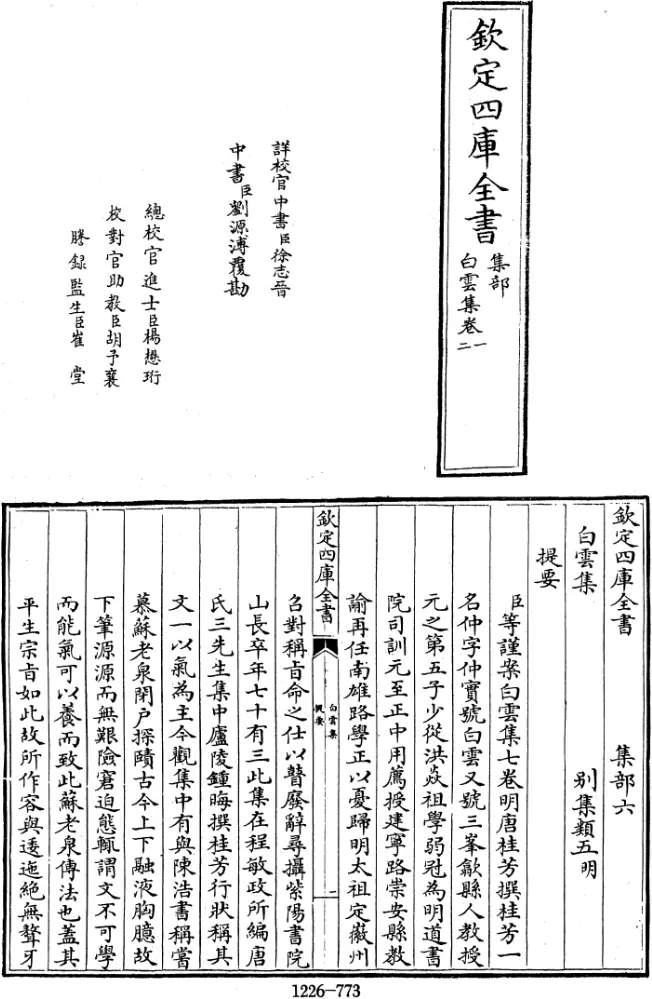 欽定四庫全書
集部
白雲集卷一
二
詳校官中書臣徐志晉
中書臣劉源溥覆勘
總校官進士臣楊懋珩
校對官助教臣胡予襄
謄錄監生臣崔堂
欽定四庫全書 集部六
白雲集 別集類五明
提要
臣等謹案白雲集七卷明唐桂芳撰桂芳一
名仲字仲實號白雲又號三峯歙縣人教授
元之第五子少從洪焱祖學弱冠為明道書
院司訓元至正中用薦授建寧路崇安縣教
諭再任南雄路學正以憂歸明太祖定徽州
欽定四庫全書
白雲集
提要
一
召對稱旨命之仕以瞽廢辭尋攝紫陽書院
山長卒年七十有三此集在程敏政所編唐
氏三先生集中廬陵鍾晦撰桂芳行狀稱其
文一以氣為主今觀集中有與陳浩書稱嘗
慕蘇老泉閉户探賾古今上下融液胸臆故
下筆源源而無艱險窘迫態輒謂文不可學
而能氣可以養而致此蘇老泉傳法也蓋其
平生宗旨如此故所作容與逶迤絕無聱牙
1226-773